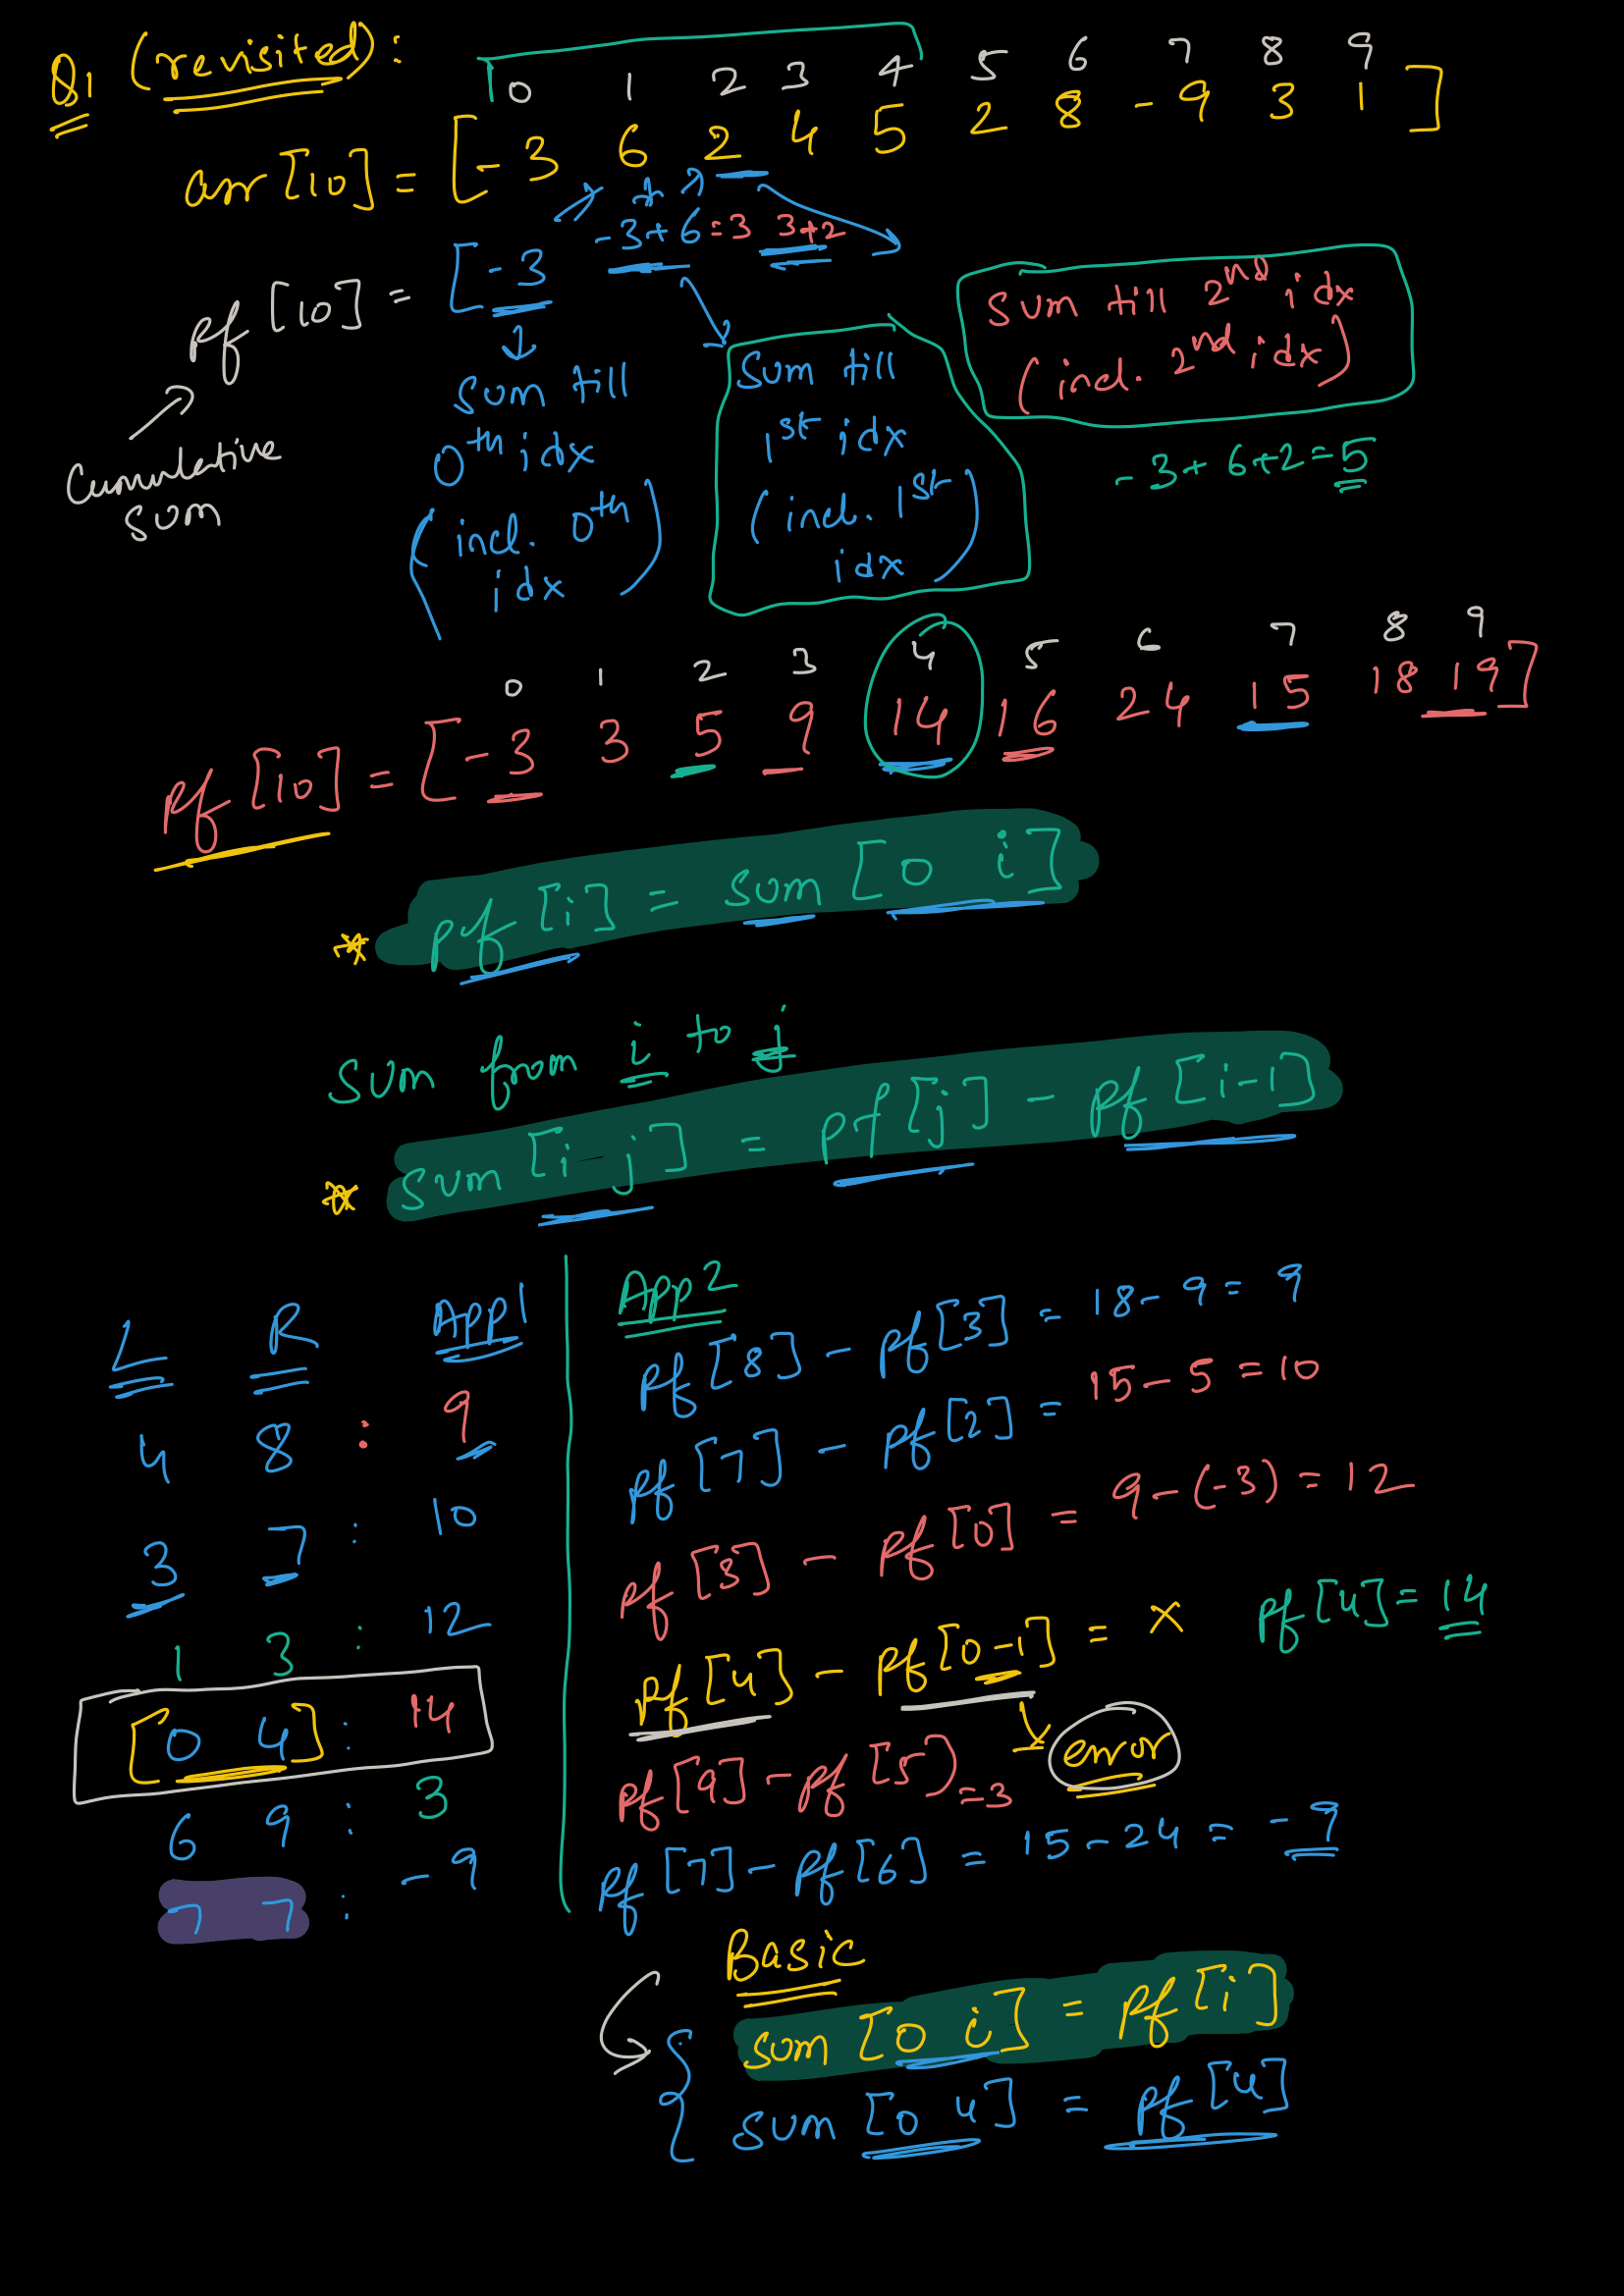 Q1 (revisited):
0 1 2 3 4 5 6 7 8 9
arr [10] = [-3 6 2 4 5 2 8 -9 3 1]
-3+6=3 3+2
pf [10] = [-3
Cumulative
sum
sum till
0th idx
(incl. 0th
idx)
sum till
1st idx
(incl. 1st
idx)
sum till 2nd idx
(incl. 2nd idx)
-3+6+2=5
0 1 2 3 4 5 6 7 8 9
pf [10] = [-3 3 5 9 14 16 24 15 18 19]
* pf [i] = sum [0 i]
sum from i to j
* sum [i-j] = pf [j] - pf [i-1]
L R App1
4 8 : 9
3 7 : 10
1 3 : 12
[0 4] : 14
6 9 : 3
7 7 : -9
App2
pf [8] - pf [3] = 18-9 = 9
pf [7] - pf [2] = 15-5 = 10
pf [3] - pf [0] = 9-(-3) = 12
pf [4] - pf [0-1] = x pf [4] = 14
error
pf [9] - pf [5) =3
pf [7] - pf [6] = 15-24 = -9
Basic
sum [0 i] = pf [i]
sum [0 4] = pf [4]